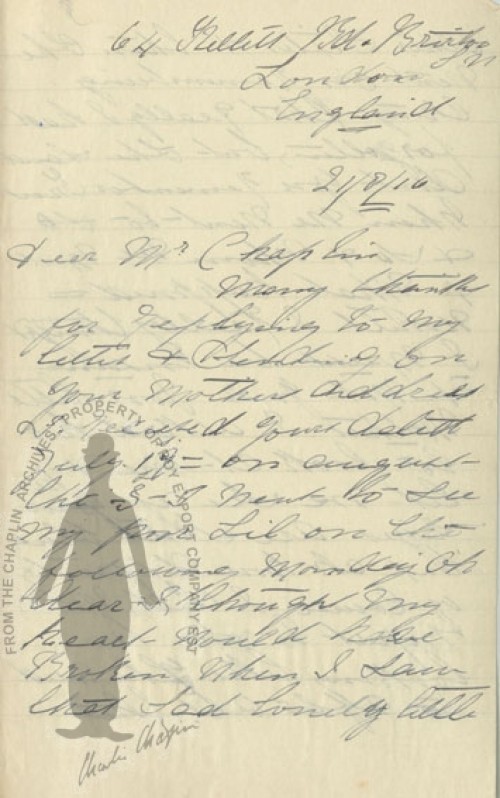 64 Kellett Rd. Brixton
London
England
21/8/16
Dear Mr Chaplin
Many thanks
for replying to my
letter & sending on
your Mothers address
I received yours dated
July 1 = on august
the 5 - I went to see
my poor Lil on the
following Monday Oh
dear I thought my
heart would have
Broken when I saw
that sad lonely little
FROM THE CHAPLIN ARCHIVES, PROPERTY OF ROY EXPORT COMPANY EST
Charlie Chaplin